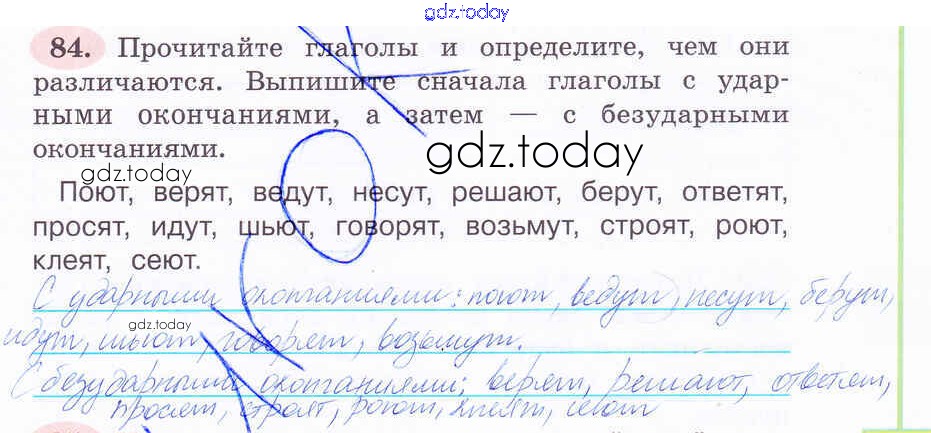 gdz.today
84. Прочитайте глаголы и определите, чем они
различаются. Выпишите сначала глаголы с удар-
ными окончаниями, а затем — с безударными
окончаниями.
gdz.today
gdz.today
Поют, верят, ведут, несут, решают, берут, ответят,
просят, идут, шьют, говорят, возьмут, строят, роют,
клеят, сеют.
С ударными окончаниями: поют, ведут, несут, берут,
gdz.today
идут, шьют, говорят, возьмут.
С безударными окончаниями: верят, решают, ответят,
gdz.today
просят, строят, роют, клеят, сеют